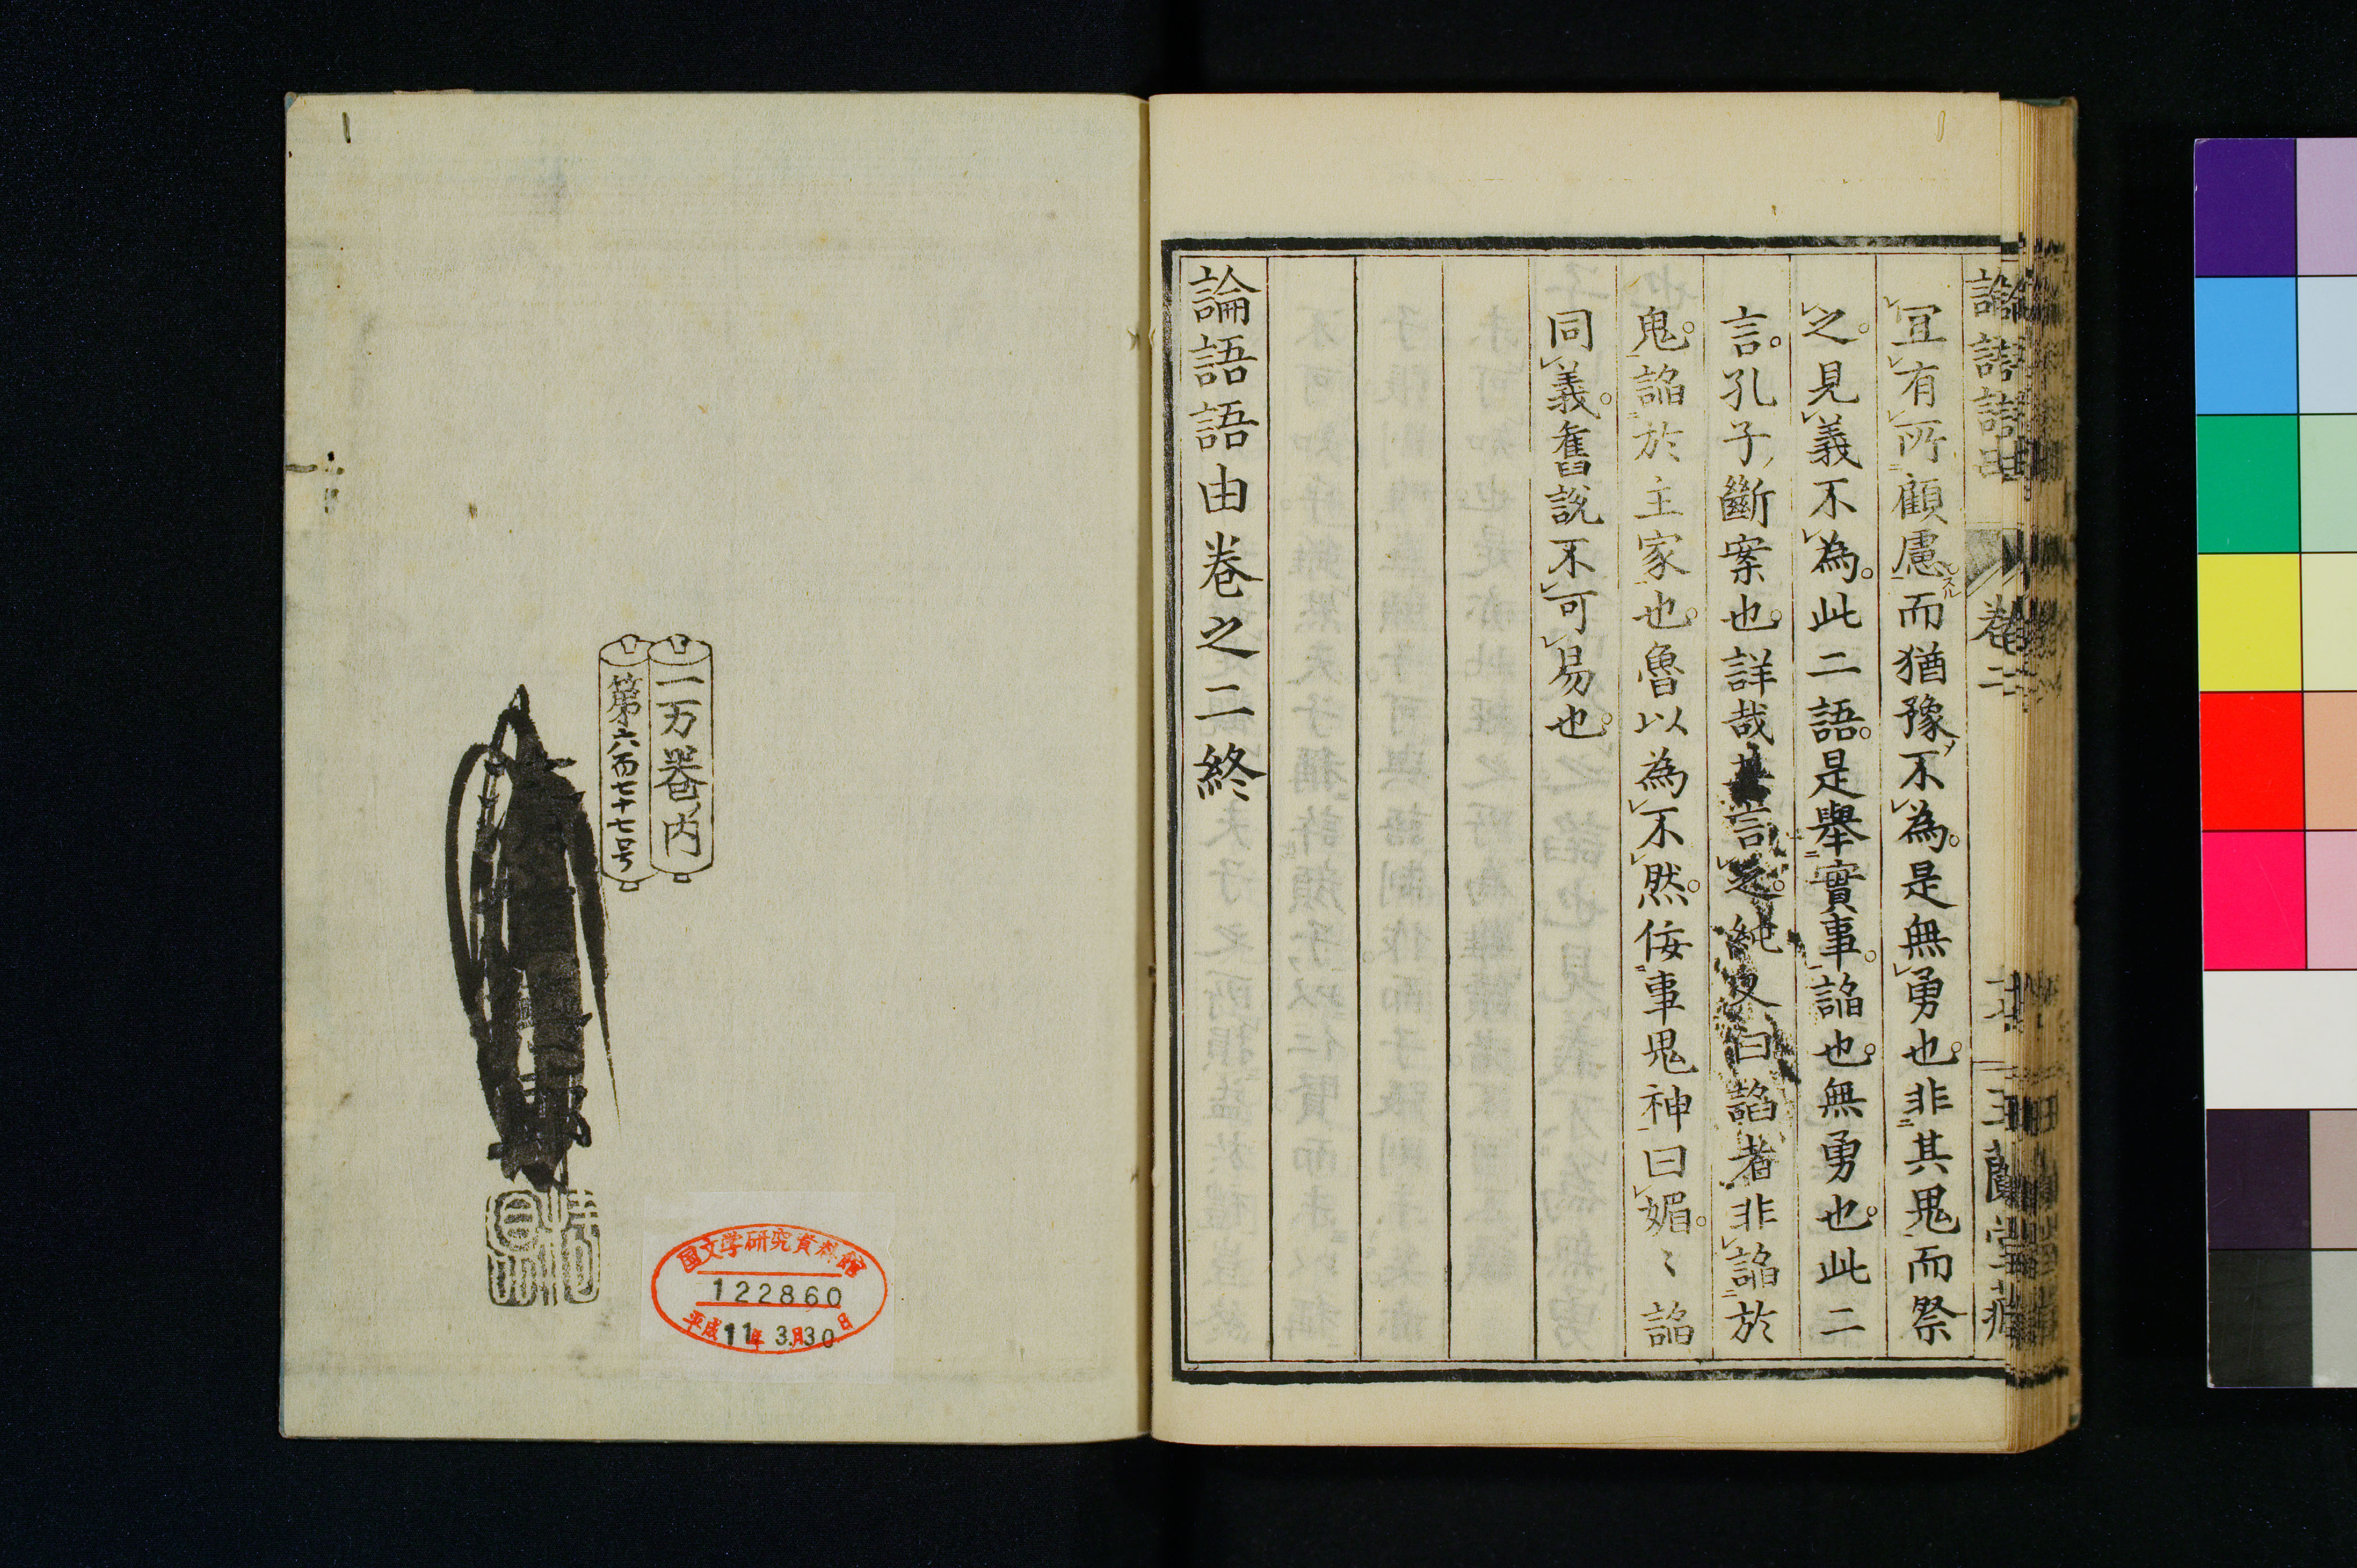 冝有所顧慮而猶豫不為。是無勇也。非其鬼而祭
之。見義不為。此二語。是舉實事。諂也。無勇也。此二
言。孔子斷案也。詳哉其言之。純又曰諂者非諂於
鬼。諂於主家也。魯以為不然。佞事鬼神曰媚。〻諂
同義。舊説不可易也。
論語語由卷之二終
卷二
二万卷内
第六百七十七号
国文学研究資料館
122860
平成11年3月30日